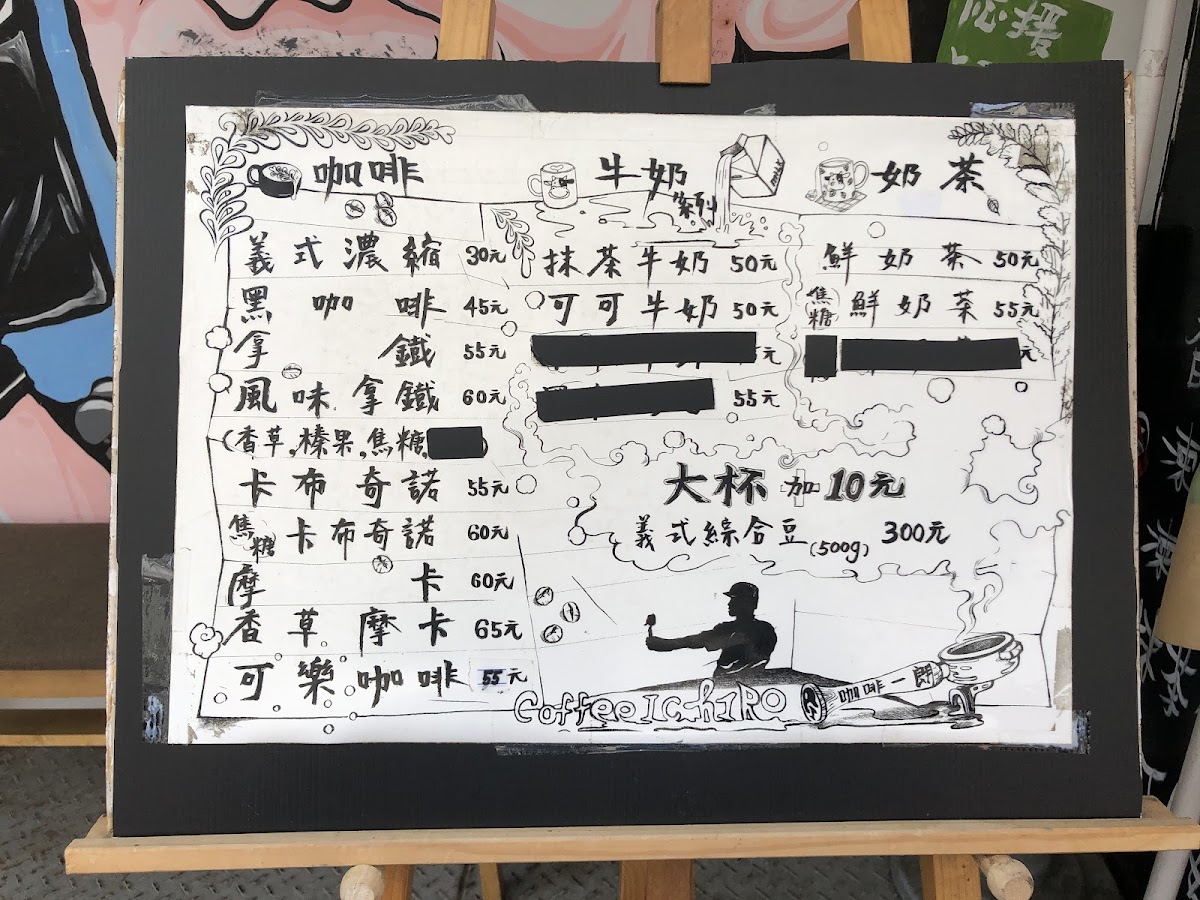 応援
咖啡
義式濃縮 30元
黑咖啡 45元
拿鐵 55元
風味拿鐵 60元
(香草,榛果,焦糖,
卡布奇諾 55元
焦糖卡布奇諾 60元
摩卡 60元
香草摩卡 65元
可樂咖啡 55元
牛奶系列
抹茶牛奶 50元
可可牛奶 50元
元
55元
奶茶
鮮奶茶 50元
焦糖鮮奶茶 55元
大杯加10元
義式綜合豆(500g) 300元
Coffee IchiRO
咖啡一郎